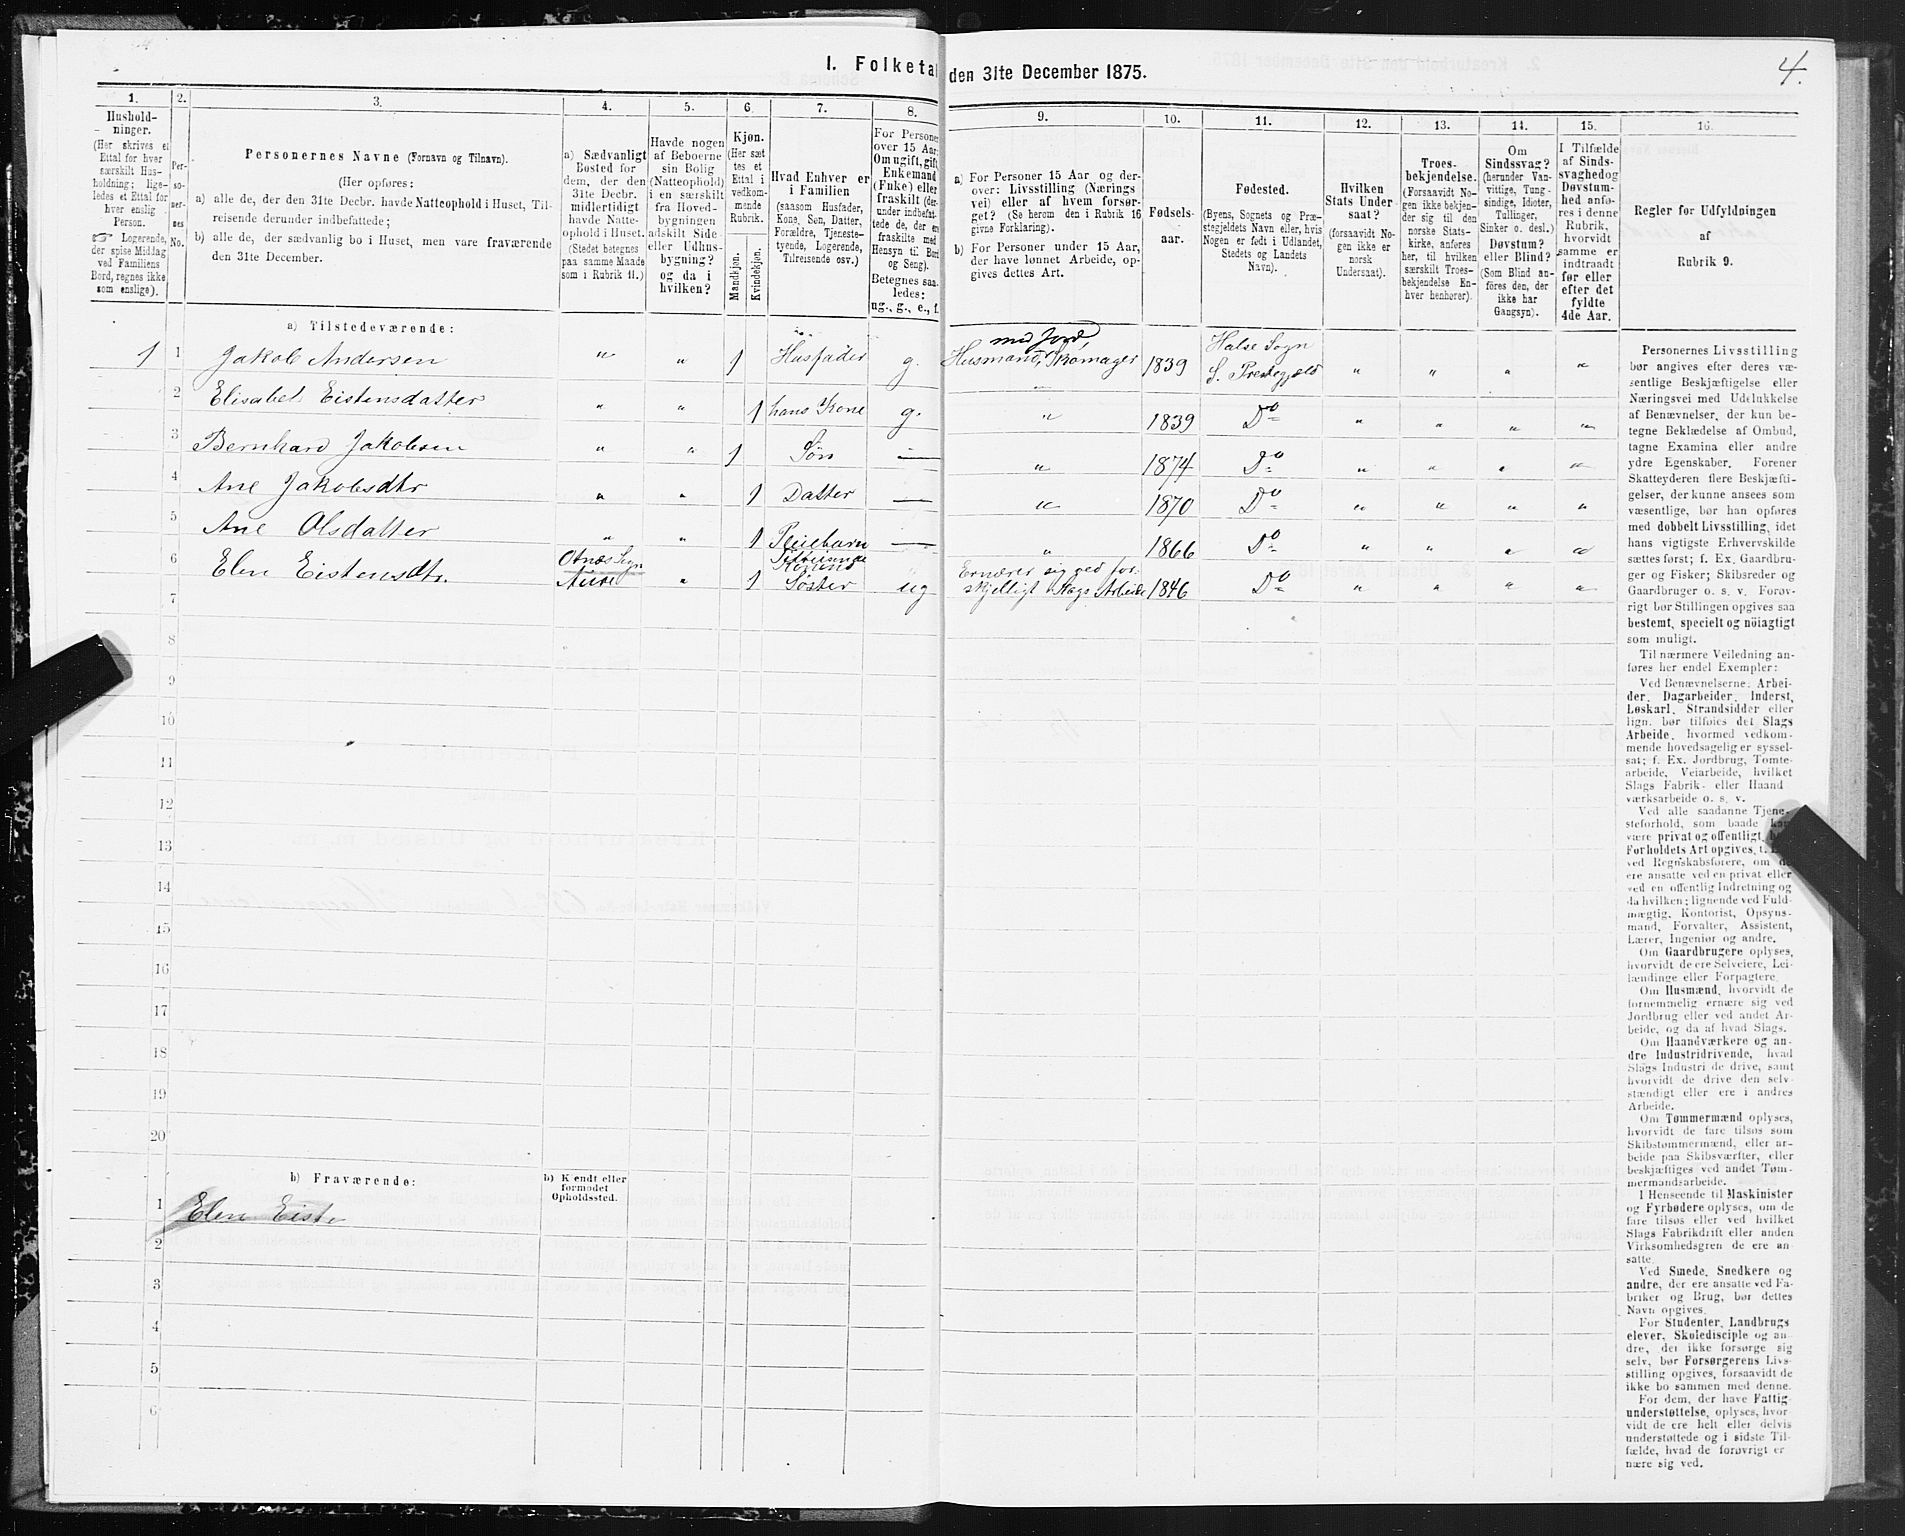 4.
I. Folketal den 31te December 1875.
1.
Hushold-
ninger.
(Her skrives et
Ettal for hver
særskilt Hus-
holdning; lige-
ledes et Ettal for
hver enslig
Person.
☞ Logerende,
der spise Middag
ved Familiens
Bord, regnes ikke
som enslige).
2.
Per-
so-
ner-
nes
No.
3.
Personernes Navne (Fornavn og Tilnavn).
(Her opføres:
a) alle de, der den 31te Decbr. havde Natteophold i Huset, Til-
reisende derunder indbefattede;
b) alle de, der sædvanlig bo i Huset, men vare fraværende
den 31te December.
4.
a) Sædvanligt
Bosted for
dem, der den
31te Decbr.
midlertidigt
havde Natte-
ophold i Huset.
(Stedet betegnes
paa samme Maade
som i Rubrik 11.)
5.
Havde nogen
af Beboerne
sin Bolig
(Natteophold)
i en særskilt
fra Hoved-
bygningen
adskilt Side-
eller Udhus-
bygning?
og da i
hvilken?
6.
Kjøn.
(Her sæt
tes et
Ettal i
vedkom-
mende
Rubrik.
Mandkjøn.
Kvindekjøn.
7.
Hvad Enhver er
i Familien
(saasom Husfader,
Kone, Søn, Datter,
Forældre, Tjeneste-
tyende, Logerende,
Tilreisende osv.)
8.
For Personer
over 15 Aar:
Om ugift, gift,
Enkemand
(Enke) eller
fraskilt (der-
under indbefat-
tede de, der ere
fraskilte med
Hensyn til Bord
og Seng).
Betegnes saa-
ledes:
ug., g., e., f.
9.
a) For Personer 15 Aar og der-
over: Livsstilling (Nærings
vei) eller af hvem forsør-
get? (Se herom den i Rubrik 16
givne Forklaring).
b) For Personer under 15 Aar,
der have lønnet Arbeide, op-
gives dettes Art.
10.
Fødsels-
aar.
11.
Fødested.
(Byens, Sognets og Præ-
stegjeldets Navn eller, hvis
Nogen er født i Udlandet,
Stedets og Landets
Navn).
12.
Hvilken
Stats Under
saat?
(forsaavidt No-
gen ikke er
norsk
Undersaat).
13.
Troes-
bekjendelse.
(Forsaavidt No-
gen ikke bekjen-
der sig til den
norske Stats-
kirke, anføres
her, til hvilken
særskilt Troes-
bekjendelse En-
hver henhører).
14.
Om
Sindssvag?
(herunder Van-
vittige, Tung-
sindige, Idioter,
Tullinger,
Sinker o. desl.)
Døvstum?
eller Blind?
(Som Blind an-
føres den, der
ikke har
Gangsyn).
15.
I Tilfælde
af Sinds-
svaghed og
Døvstum-
hed anfø-
res i denne
Rubrik,
hvorvidt
samme er
indtraadt
før eller
efter det
fyldte
4de Aar.
16.
Regler for Udfyldningen
af
Rubrik 9.
a) Tilstedeværende:
1 1 Jakob Andersen " " 1 Husfader g. Husmand med Jord, Skomager 1839 Halse Sogn S. Prestegjeld " " " "
2 Elisabet Eistensdatter " " 1 hans Kone g. " 1839 Do " " " "
3 Bernhard Jakobsen " " 1 Søn — " 1874 Do " " " "
4 Ane Jakobsdtr " " 1 Datter — " 1870 Do " " " "
5 Ane Olsdatter " " 1 Pleiebarn — " 1866 Do " " " "
6 Elen Eistensdtr. Aure " 1 Konens Søster ug Ernærer sig ved for- skjelligt Slags Arbeide 1846 Do " " " "
7
8
9
10
11
12
13
14
15
16
17
18
19
20
b) Fraværende:
b) Kjendt eller
formodet
Opholdssted.
1 Elen Eiste
2
3
4
5
6
Personernes Livsstilling
bør angives efter deres væ-
sentlige Beskjæftigelse eller
Næringsvei med Udelukkelse
af Benævnelser, der kun be-
tegne Beklædelse af Ombud,
tagne Examina eller andre
ydre Egenskaber. Forener
Skatteyderen flere Beskjæfti-
gelser, der kunne ansees som
væsentlige, bør han opføres
med dobbelt Livsstilling, idet
hans vigtigste Erhvervskilde
sættes først; f. Ex. Gaardbru-
ger og Fisker; Skibsreder og
Gaardbruger o. s. v. Forøv-
rigt bør Stillingen opgives saa
bestemt, specielt og nöiagtigt
som muligt.
Til nærmere Veiledning an-
føres her endel Exempler:
Ved Benævnelserne: Arbei-
der, Dagarbeider, Inderst,
Løskarl, Strandsidder eller
lign. bør tilføies det Slags
Arbeide, hvormed vedkom-
mende hovedsagelig er syssel-
sat; f. Ex. Jordbrug, Tomte-
arbeide, Veiarbeide, hvilket
Slags Fabrik- eller Haand
værksarbeide o. s. v.
Ved alle saadanne Tjene-
steforhold, som baade kan
være privat og offentligt, bør
Forholdets Art opgives, t. Ex.
ved Regnskabsførere, om de
ere ansatte ved en privat eller
ved en offentlig Indretning og
da hvilken; lignende ved Fuld-
mægtig, Kontorist, Opsyns-
mand, Forvalter, Assistent,
Lærer, Ingeniør og andre.
Om Gaardbrugere oplyses,
hvorvidt de ere Selveiere, Lei-
lændinge eller Forpagtere.
Om Husmænd, hvorvidt de
fornemmelig ernære sig ved
Jordbrug eller ved andet Ar-
beide, og da af hvad Slags.
Om Haandværkere og an-
dre Industridrivende, hvad
Slags Industri de drive, samt
hvorvidt de drive den selv-
stændigt eller ere i andres
Arbeide.
Om Tømmermænd oplyses,
hvorvidt de fare tilsøs som
Skibstømmermænd, eller ar-
beide paa Skibsværfter, eller
beskjæftiges ved andet Tøm-
mermandsarbeide.
I Henseende til Maskinister
og Fyrbødere oplyses, om de
fare tilsøs eller ved hvilket
Slags Fabrikdrift eller anden
Virksomhedsgren de ere an-
satte.
Ved Smede, Snedkere og
andre, der ere ansatte ved Fa-
briker og Brug, bør dettes
Navn opgives.
For Studenter, Landbrugs
elever, Skoledisciple og an-
dre, der ikke forsørge sig
selv, bør Forsørgerens Livs-
stilling opgives, forsaavidt de
ikke bo sammen med denne.
For dem, der have Fattig-
understøttelse, oplyses, hvor-
vidt de ere helt eller delvis
understøttede og i sidste Til-
fælde, hvad de forøvrigt er
nære sig ved.